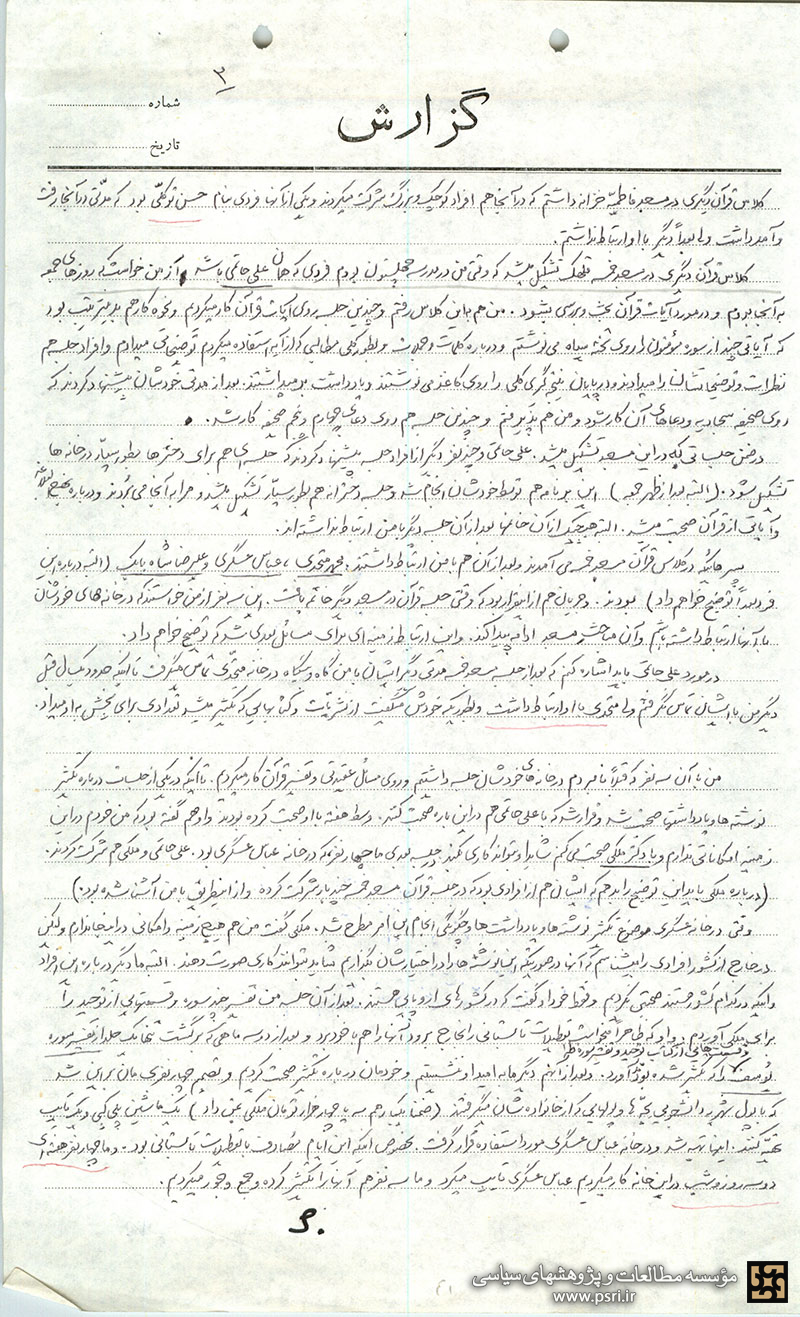 ۳
گزارش
شماره
تاریخ
کلاس قرآن دیگری در مسجد فاطمیه خزانه داشتم که در آنجا هم افراد کوچک و بزرگ شرکت میکردند و یکی از آنها فردی بنام حسن توکلی بود که مدتی در آنجا رفت
و آمد داشت ولی بعداً دیگر با او ارتباط نداشتم.
کلاس قرآن دیگری در مسجد قلهک تشکیل میشد که وقتی من در مدرسه چهلستون بودم فردی که همان علی حاتمی باشد از من خواست که روزهای جمعه
به آنجا بروم و در مورد آیات قرآن بحث و بررسی بشود. من هم به این کلاس رفتم و چندین جلسه روی آیات قرآن کار میکردیم و نحوه کار هم بدین ترتیب بود
که آیاتی چند از سوره مؤمنون را روی تخته سیاه می‌نوشتم و درباره کلمات و جملات و بطور کلی مطالبی که از آیه استفاده میکردم توضیحاتی میدادم و افراد جلسه هم
نظرات و توضیحاتشان را میدادند و در پایان نتیجه گیری کلی را روی کاغذ می‌نوشتند و یادداشت برمیداشتند. بعد از مدتی خودشان پیشنهاد کردند که
روی صحیفه سجادیه و دعاهای آن کار شود و من هم پذیرفتم و چندین جلسه هم روی دعای چهارم و پنجم صحیفه کار شد.
در ضمن جلساتی که در این مسجد تشکیل میشد. علی حاتمی و چند نفر دیگر از افراد جلسه پیشنهاد کردند که جلسه‌ای هم برای دخترها بطور سیار در خانه‌ها
تشکیل شود. (البته بعد از ظهر جمعه) این برنامه هم توسط خودشان انجام شد و جلسه دخترانه هم بطور سیار تشکیل میشد و مرا به آنجا می‌بردند و درباره نهج البلاغه
و آیاتی از قرآن صحبت میشد. البته هیچیک از آن خانمها بعد از آن جلسه دیگر با من ارتباط نداشته‌اند.
پسرهائیکه در کلاس قرآن مسجد می‌آمدند و بعد از آن هم با من ارتباط داشتند. محمد متحدی، عباس عسگری و علیرضا شاه بابک (البته درباره این
فرد بعداً توضیح خواهم داد) بودند. و جریان هم از اینقرار بود که وقتی جلسه قرآن در مسجد دیگر خاتمه یافت. این سه نفر از من خواستند که در خانه‌های خودشان
با آنها ارتباط داشته باشم و آن مباحث مسجد ادامه پیدا کند. و این ارتباط زمینه‌ای برای مسائل بعدی شد که توضیح خواهم داد.
در مورد علی حاتمی باید اشاره کنم که بعد از جلسه مسجد مدتی دیگر ایشان با من گاه و بیگاه در خانه متحدی تماس میگرفت تا اینکه حدود یکسال قبل
دیگر من با ایشان تماس نگرفتم ولی متحدی با او ارتباط داشت و بطوریکه خودش میگفت از نشریات و کتابهایی که تکثیر میشد تعدادی برای پخش به او میداد.
من با آن سه نفر که قبلاً نام بردم در خانه‌های خودشان جلسه داشتیم و روی مسائل عقیدتی و تفسیر قرآن کار میکردیم. تا اینکه در یکی از جلسات درباره تکثیر
نوشته‌ها و یادداشتها صحبت شد و قرار شد که با علی حاتمی هم در این باره صحبت کنند. وسط هفته با او صحبت کرده بودند و او هم گفته بود که من خودم در این
زمینه امکاناتی ندارم و با دکتر ملکی صحبت می‌کنم شاید او بتواند کاری بکند. جلسه بعدی ما چهار نفر که در خانه عباس عسگری بود. علی حاتمی و ملکی هم شرکت کردند.
(درباره ملکی باید این توضیح را بدهم که ایشان هم از افرادی بود که در جلسه قرآن مسجد چند بار شرکت کرده و از اینطریق با من آشنا شده بود.)
وقتی در خانه عسگری موضوع تکثیر نوشته‌ها و یادداشتها و چگونگی انجام این امر مطرح شد. ملکی گفت من هم هیچ زمینه و امکانی در اینجا ندارم ولیکن
در خارج از کشور افرادی را میشناسم که آنها در صورتیکه این نوشته‌ها را در اختیارشان بگذاریم شاید بتوانند کاری صورت دهند. البته ما دیگر درباره این افراد
و اینکه در کدام کشور هستند صحبتی نکردیم و فقط خود او گفت که در کشورهای اروپایی هستند. بعد از آن جلسه من تفسیر چند سوره و قسمتهایی از توحید را
برای ملکی آوردم و او که ظاهراً میخواست تعطیلات تابستانی را بخارج برود آنها را هم با خود برد و بعد از دو سه ماهی که برگشت تنها یک جلد از تفسیر سوره
و قسمت‌هایی از کتاب توحید و تفسیر سوره
یوسف را که تکثیر شده بود آورد. و بعد از اینهم دیگر ما به امید او ننشستیم و خودمان درباره تکثیر صحبت کردیم و تصمیم چهار نفری مان بر این شد
که با پول شهریه دانشجویی بچه‌ها و پولهایی که از خانواده‌شان میگرفتند (ضمناً یک رقم سه یا چهار هزار تومان ملکی بمن داد) یک ماشین پلی‌کپی و یک تایپ
تهیه کنند. اینها تهیه شد و در خانه عباس عسگری مورد استفاده قرار گرفت. بخصوص اینکه این ایام مصادف با تعطیلات تابستانی بود. و ما چهار نفر هفته‌ای
دو سه روز و شب در این خانه کار میکردیم عباس عسگری تایپ میکرد و ما سه نفر هم آنها را تکثیر کرده و جمع و جور میکردیم.
مؤسسه مطالعات و پژوهشهای سیاسی
www.psri.ir